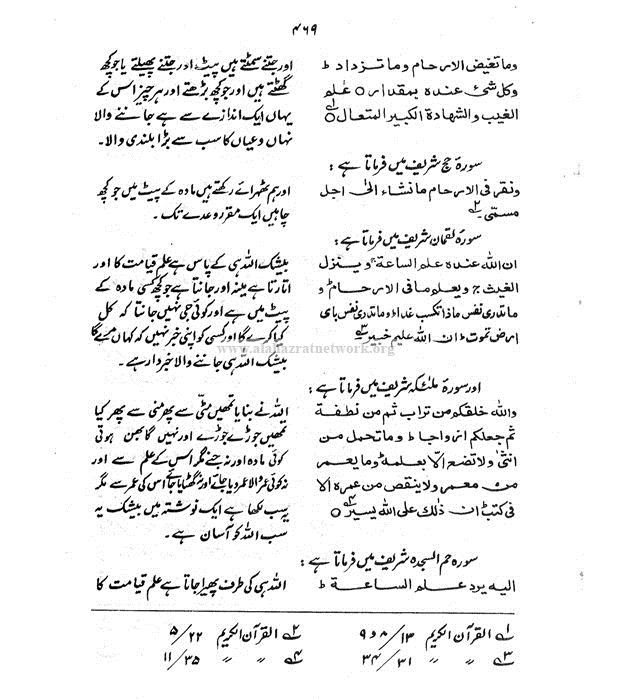 ۴۶۹
وما تغیض الارحام وما تزداد ط
وکل شیئ عندہ بمقدار ○ عٰلم
الغیب والشھادة الکبیر المتعال ○ ؎۱
اور جتنے سمٹتے ہیں پیٹ، اور جتنے پھیلتے یا جو کچھ
گھٹتے ہیں اور جو کچھ بڑھتے اور ہر چیز اس کے
یہاں ایک اندازے سے ہے جاننے والا
نہاں و عیاں کا سب سے بڑا بلندی والا۔
سورۂ حج شریف میں فرماتا ہے :
ونقر فی الارحام ما نشاء الٰی اجل
مسمّٰی۔ ؎۲
اور ہم ٹھہرائے رکھتے ہیں مادہ کے پیٹ میں جو کچھ
چاہیں ایک مقرر وعدے تک۔
سورۂ لقمان شریف میں فرماتا ہے :
ان اللہ عندہ علم الساعة ج وینزل
الغیث ج ویعلم ما فی الارحام ط و
ما تدری نفس ماذا تکسب غداء وما تدری نفس بای
ارض تموت ط ان اللہ علیم خبیر ؎۳
بیشک اللہ ہی کے پاس ہے علم قیامت کا اور
اتارتا ہے مینہ اور جانتا ہے جو کچھ کسی مادہ کے
پیٹ میں ہے اور کوئی جی نہیں جانتا کہ کل
کیا کرے گا اور کسی کو اپنی خبر نہیں کہ کہاں مرے گا
بیشک اللہ ہی جاننے والا خبردار ہے۔
www.alahazratnetwork.org
اور سورۂ ملٰئکہ شریف میں فرماتا ہے :
واللہ خلقکم من تراب ثم من نطفة
ثم جعلکم ازواجا ط وما تحمل من
انثٰی ولا تضع الّا بعلمہ ط وما یعمر
من معمر ولا ینقص من عمرہ الّا
فی کتٰب ط ان ذٰلک علی اللہ یسیر ؎۴ ○
اللہ نے بنایا تمھیں مٹی سے پھر منی سے پھر کیا
تمھیں جوڑے جوڑے اور نہیں گابھن ہوتی
کوئی مادہ اور نہ جنے مگر اس کے علم سے اور
نہ کوئی عمر والا عمر دیا جائے اور نہ گھٹایا جائے اس کی عمر سے مگر
یہ سب لکھا ہے ایک نوشتہ میں بیشک یہ
سب اللہ کو آسان ہے۔
سورہ حم السجدہ شریف میں فرماتا ہے :
الیہ یرد علم الساعة ط
اللہ ہی کی طرف پھیرا جاتا ہے علم قیامت کا
؎۱ القرآن الکریم ۱۳/ ۸ و ۹
؎۲ القرآن الکریم ۲۲/ ۵
؎۳ " " ۳۱/ ۳۴
؎۴ " " ۳۵/ ۱۱